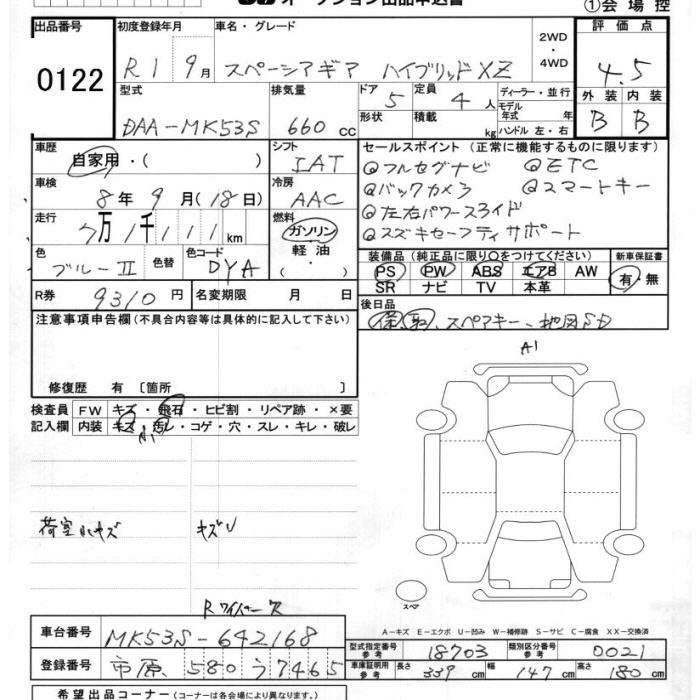 オークション出品申込書 ①会場控
出品番号 0122
初度登録年月 R1 9月
車名・グレード スペーシアギア ハイブリッドXZ
2WD・4WD
評価点 4.5
外装 B 内装 B
型式 DAA-MK53S
排気量 660cc
ドア 5 定員 4人
形状 積載 kg
ディーラー・並行
モデル年式 年
ハンドル 左・右
車歴 自家用・( )
シフト IAT
車検 8年9月(18日)
冷房 AAC
走行 7万1千111km
燃料 ガソリン 軽油
色 ブルーⅡ 色替
色コード DYA
R券 9310円 名変期限 月 日
セールスポイント(正常に機能するものに限ります)
@フルセグナビ @ETC
@バックカメラ @スマートキー
@左右パワースライド
@スズキセーフティサポート
装備品(純正品に限り○をつけてください) 新車保証書
PS PW ABS エアB AW 有・無
SR ナビ TV 本革
後日品
保、取、スペアキー、地図SD
注意事項申告欄(不具合内容等は具体的に記入して下さい)
修復歴 有 〔箇所 〕
検査員記入欄
FW キズ・飛石・ヒビ割・リペア跡・×要
内装 キズ・汚れ・コゲ・穴・スレ・キレ・破レ
A1
荷室内キズ キズU
Rワイパー欠
スペア
A-キズ E-エクボ U-凹み W-補修跡 S-サビ C-腐食 XX-交換済
車台番号 MK53S-642168
型式指定番号参考 18703 類別区分番号参考 0021
登録番号 市原 580 う 7465
車庫証明用参考 長さ 339cm 幅 147cm 高さ 180cm
希望出品コーナー(コーナーは各会場により異なります。)